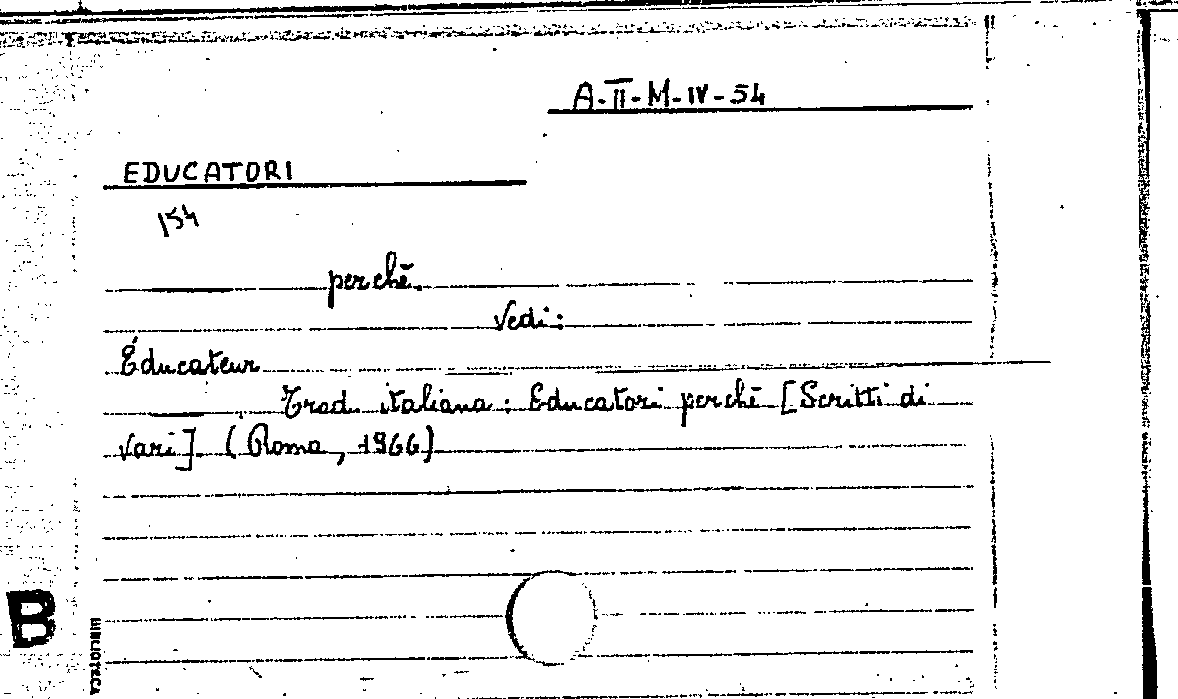 A-II-M-IV-54
EDUCATORI
154
perchè.
Vedi:
Éducateur
Trad. italiana: Educatori perchè [Scritti di
vari] (Roma, 1966)
B
BIBLIOTECA